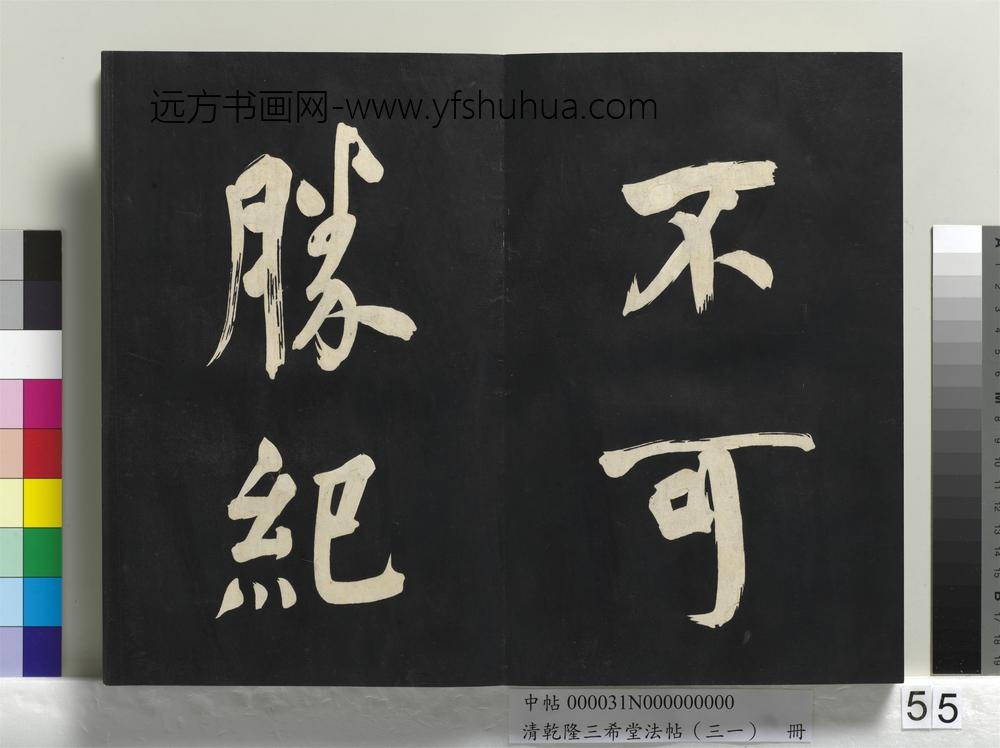 远方书画网-www.yfshuhua.com
不可
勝紀
中帖 000031N000000000
清乾隆三希堂法帖（三一） 冊
55